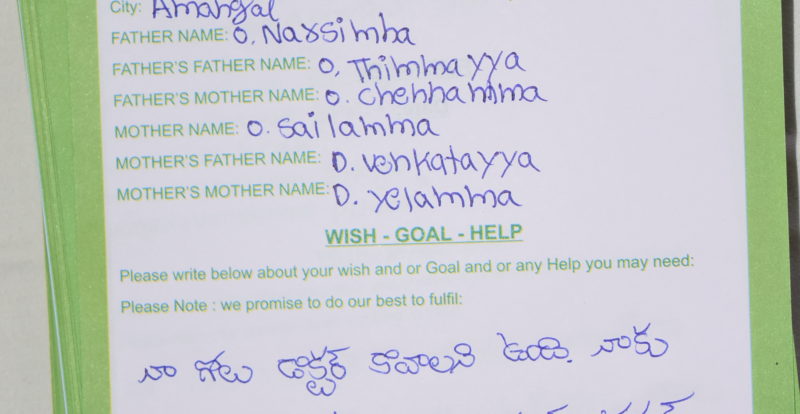 City: Amangal
FATHER NAME: O. Narsimha
FATHER'S FATHER NAME: O. Thimmayya
FATHER'S MOTHER NAME: O. Chennamma
MOTHER NAME: O. Sailamma
MOTHER'S FATHER NAME: D. Venkatayya
MOTHER'S MOTHER NAME: D. Yelamma
WISH - GOAL - HELP
Please write below about your wish and or Goal and or any Help you may need:
Please Note : we promise to do our best to fulfil:
నా గోలు డాక్టర్ కావాలని ఉంది. నాకు